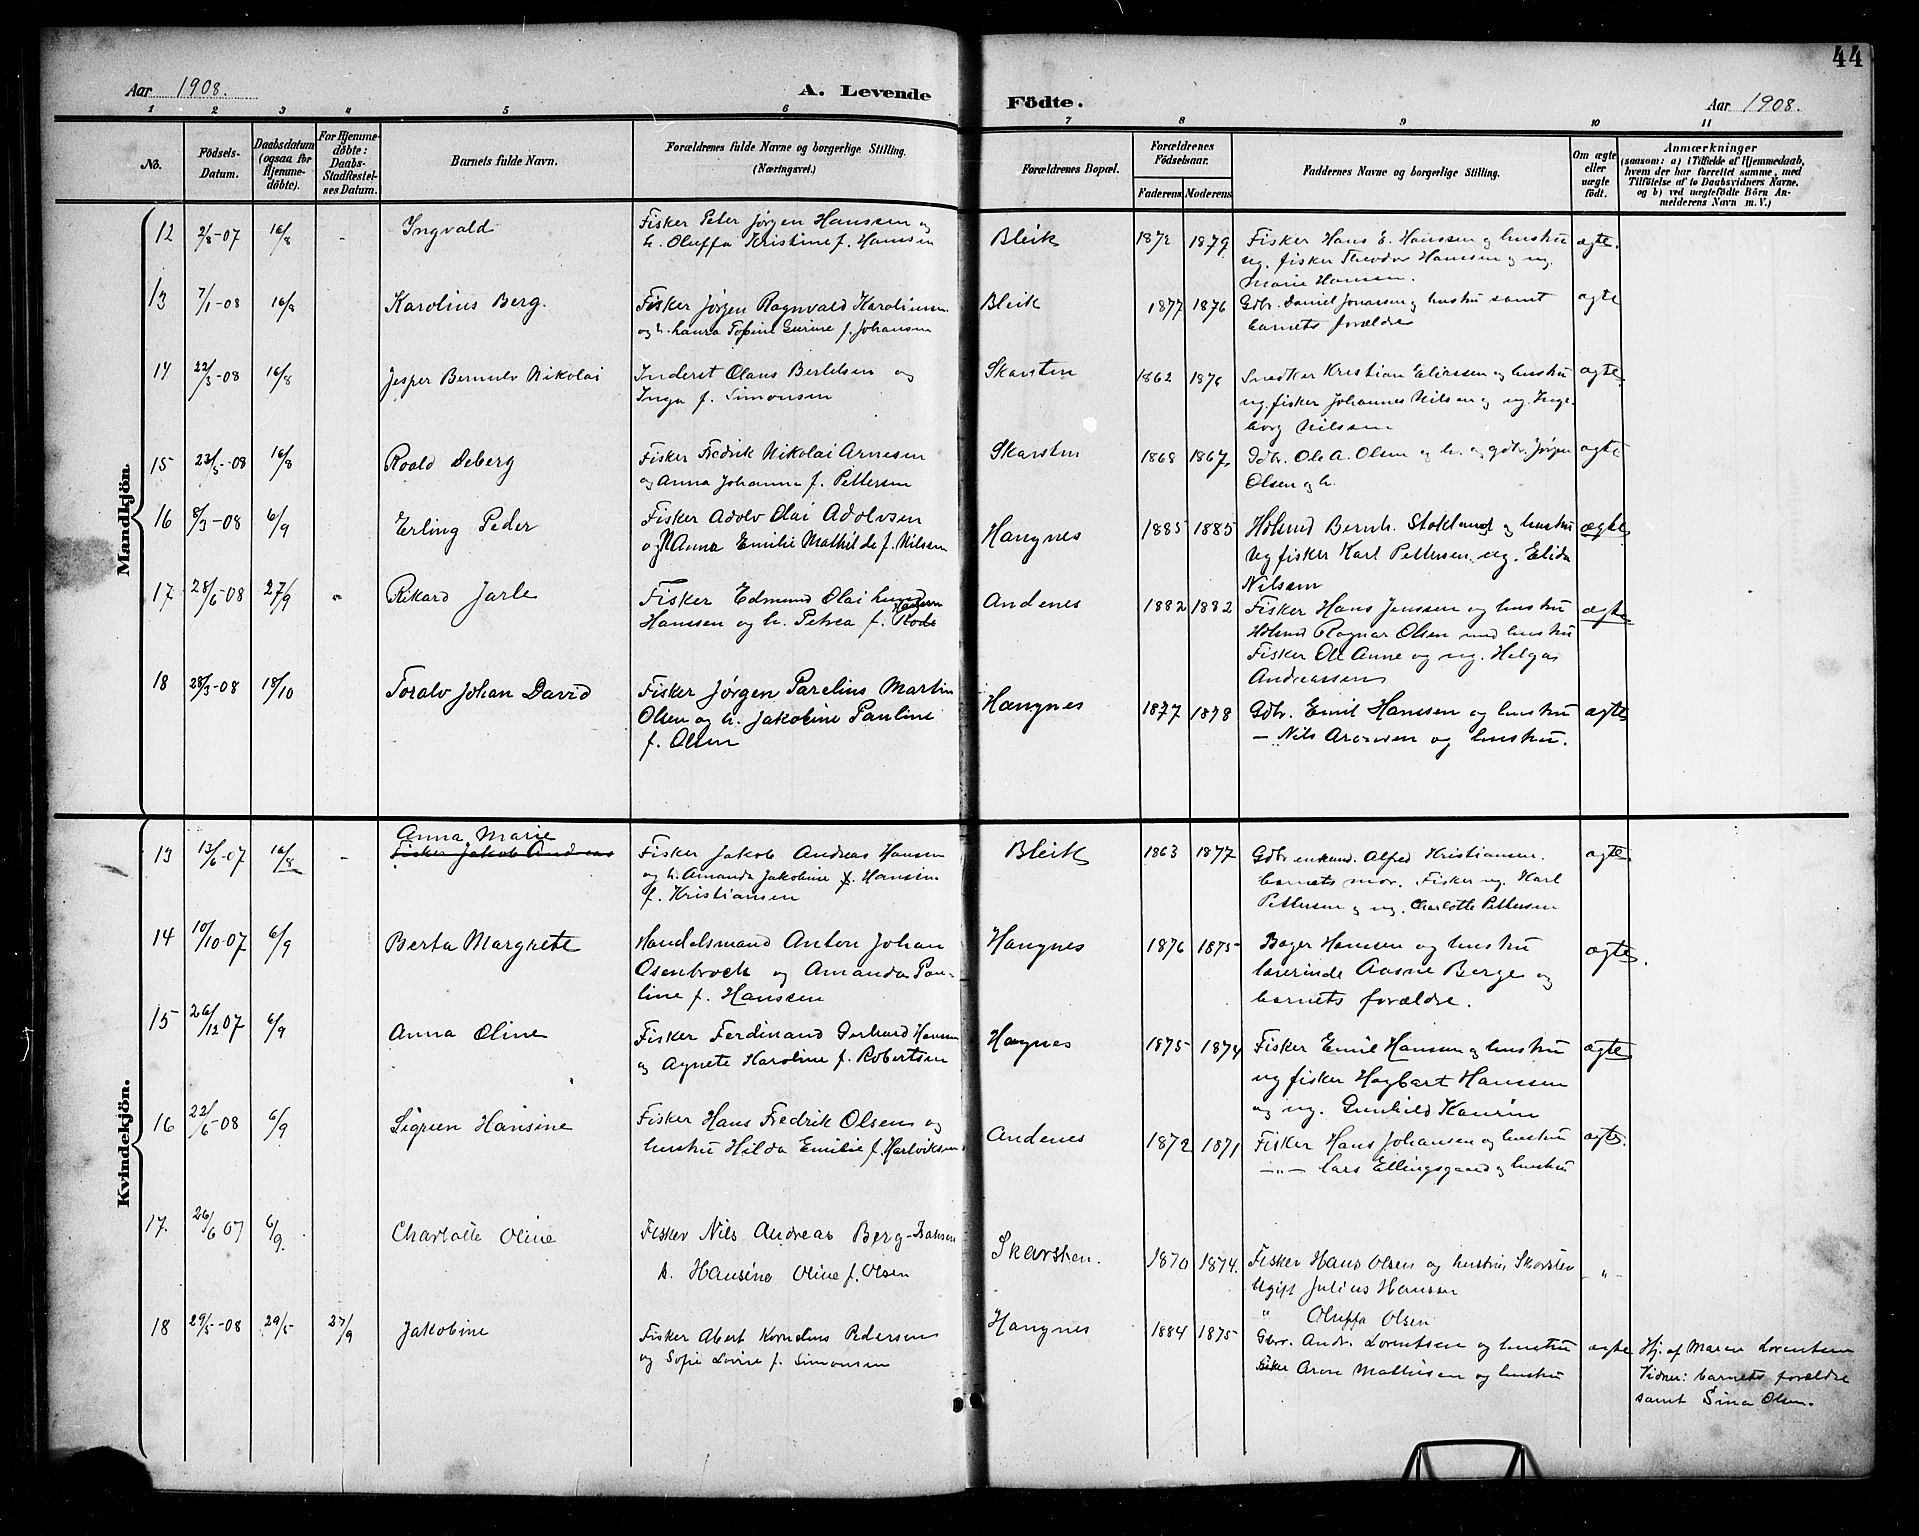 44
Aar 1908.
A. Levende
Födte.
Aar 1908.
1 2 3 4 5 6 7 8 9 10 11
No.
Födsels-
Datum.
Daabsdatum
(ogsaa for
Hjemme-
döbte).
For Hjemme-
döbte:
Daabs-
Stadfæstel-
ses Datum.
Barnets fulde Navn.
Forældrenes fulde Navne og borgerlige Stilling.
(Næringsvei.)
Forældrenes Bopæl.
Forældrenes
Födselsaar.
Faderens Moderens
Faddernes Navne og borgerlige Stilling.
Om ægte
eller
uægte
födt.
Anmærkninger
(saasom: a) i Tilfælde af Hjemmedaab,
hvem der har forrettet samme, med
Tilföielse af to Daabsvidners Navne,
og b) ved uægtefödte Börn An-
melderens Navn m. V.)
Mandkjön.
12 2/8-07 16/8 - Ingvald
Fisker Peter Jørgen Hanssen og
h. Oluffa Kristine f. Hansen
Bleik 1872 1879
Fisker Hans E. Hanssen og hustru
ug. fisker Theodor Hanssen og ug.
Marie Hansen.
ægte.
13 7/1-08 16/8 Karolius Berg.
Fisker Jørgen Ragnvald Karoliussen
og h. Laura Topine Gurine f. Johansen
Bleik 1877 1876
Gdbr. Daniel Jonassen og hustru samt
barnets forældre
ægte
14 22/3-08 16/8 Jesper Bernulv Nikolai
Inderst Olaus Bertelsen og
Inga f. Simonsen
Skarsten 1862 1876
Snedker Kristian Eliassen og hustru
ug. fisker Johannes Nilsen og ug. Inge-
borg Nilssen
ægte
15 23/5-08 16/8 Roald Deberg
Fisker Fredrik Nikolai Arnesen
og Anna Johanna f. Pettersen
Skarsten 1868 1867
Gdbr. Ole A. Olsen og h. og gdbr. Jørgen
Olsen og h.
ægte
16 8/3-08 6/9 Erling Peder
Fisker Adolv Olai Adolvsen
og Anna Emilie Mathilde f. Nilsen
Haugnes 1885 1885
Holmd Bernh. Stokland og hustru
Ug fisker Karl Pettersen ug. Elida
Nilsen
ægte
17 28/6-08 27/9 " Rikard Jarle
Fisker Edmund Olai Lund
Hanssen og h. Petrea f. Rode
Hansen
Andenes 1882 1882
Fisker Hans Jenssen og hustru
Holmd Ragnar Olsen med hustru
Fisker Ole Anne og ug. Helga
Andreassen
ægte
18 28/3-08 18/10 Toralv Johan David
Fisker Jørgen Parelius Martin
Olsen og h. Jakobine Pauline
f. Olsen
Haugnes 1877 1878
Gdbr. Emil Hanssen og hustru
— Nils Aronsen og hustru.
ægte
Kvindekjön.
13 13/6-07 16/8 - Anna Marie
Fisker Jakob Andreas
Fisker Jakob Andreas Hansen
og h. Amanda Jakobine f. Hansen
f. Kristiansen
Bleik 1863 1877
Gdbr enkem. Alfred Kristiansen.
barnets mor. Fisker ug. Karl
Pettersen og ug. Charlotte Pettersen
ægte
14 10/10-07 6/9 Berta Margrete
Handelsmand Anton Johan
Osenbroch og Amanda Pau-
line f. Hanssen
Haugnes 1876 1875
Bager Hanssen og hustru
lærerinde Aasne Berge og
barnets forældre.
ægte.
15 26/12 07 6/9 Anna Oline
Fisker Ferdinand Gerhard Hansen
og Agnete Karoline f. Robertsen
Haugnes 1875 1874
Fisker Emil Hansen og hustru
ug fisker Hagbart Hanssen
og ug. Gunhild Kaurin
ægte
16 22/6-08 6/9 Sigrun Hansine
Fisker Hans Fredrik Olsen og
hustru Hilda Emilie f. Hartviksen
Andenes 1872 1871
Fisker Hans Johansen og hustru
—"— Lars Ellingsgaard og hustru
ægte.
17. 26/6 07 6/9. Charlotte Oline
Fisker Nils Andreas Berg-Isaksen
h. Hansine Oline f. Olsen
Skarsten. 1870 1874.
Fisker Hans Olsen og hustru Skarsten
Ugift Julius Hanssen
" Oluffa Olsen
- " -
18 29/5-08 29/5 27/9 Jakobine
Fisker Abert Kornelius Pedersen
og Sofie Lovise f. Simonsen
Haugnes 1884 1875
Gbr. Andr. Lorentsen og hustru
fisker Aron Mathisen og hustru
ægte
Hj. af Maren Lorentsen
Vidner: barnets forældre
samt Sina Olsen.